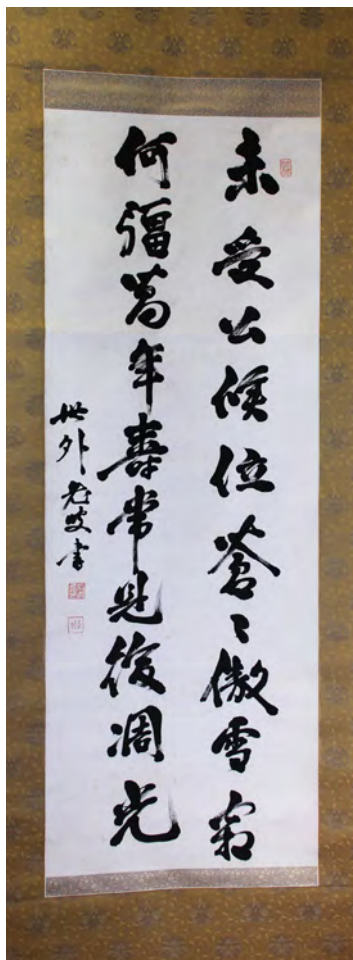 未受公候位蒼〻傲雪霜
何彊萬年壽常見後凋光
世外老叟書